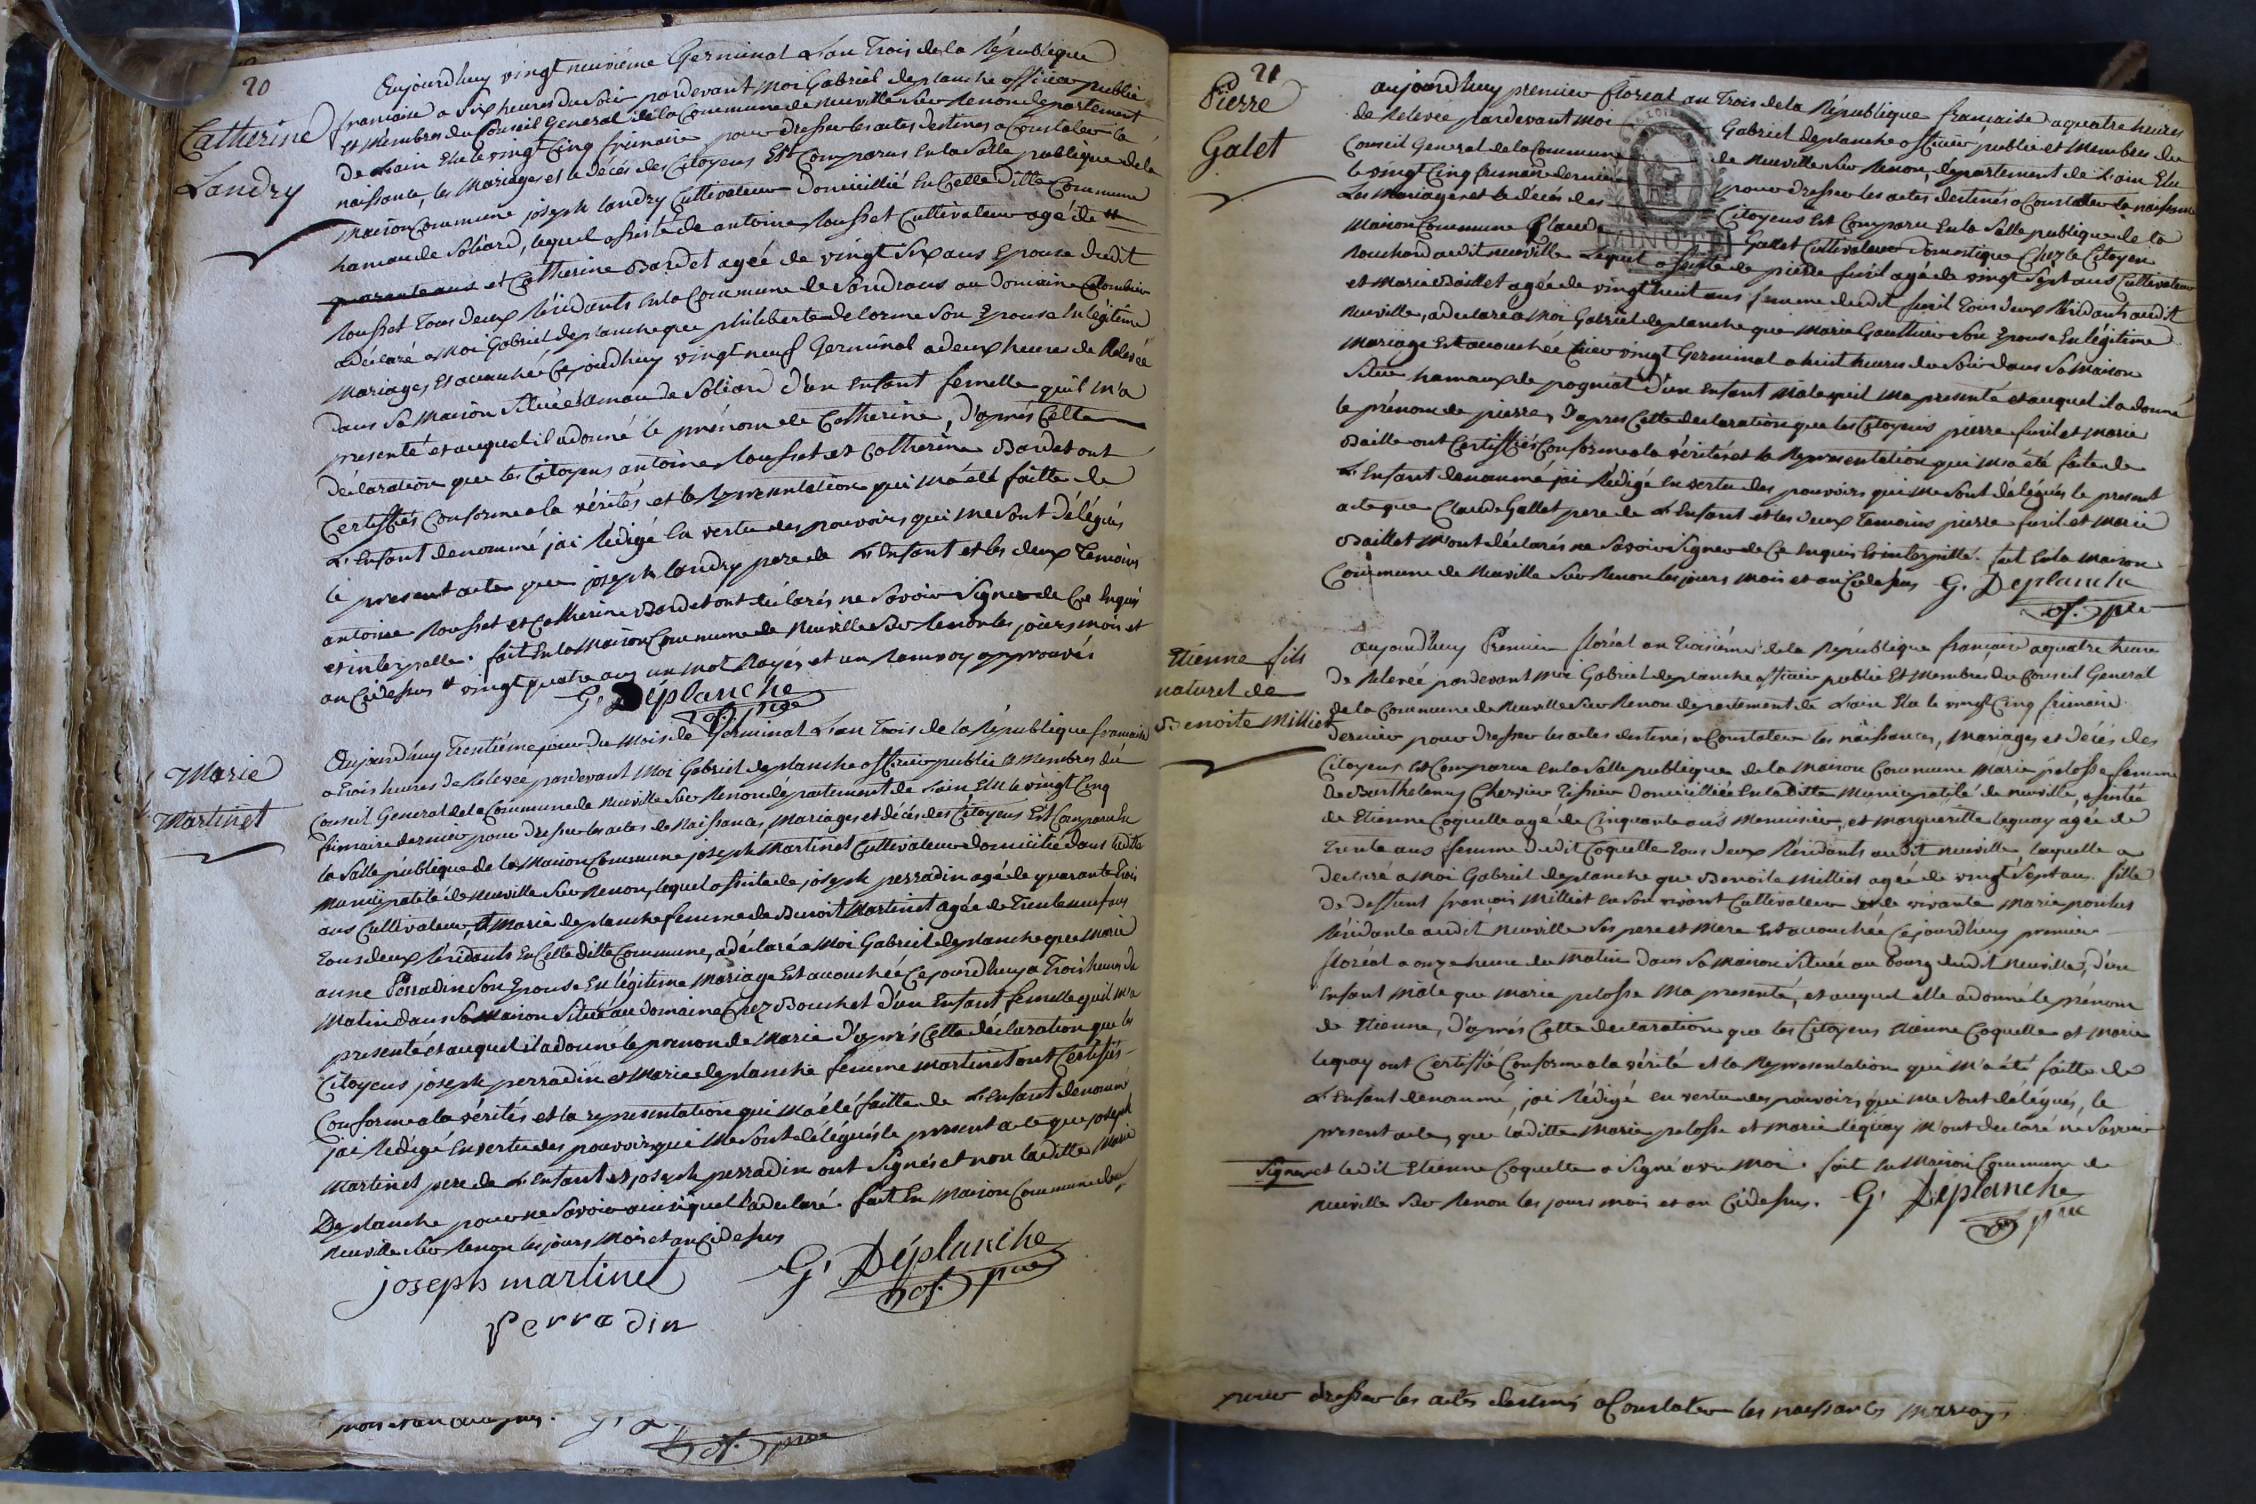 20
Catherine
Landry
Aujourdhuy vingt neuvième Germinal L'an Trois de la République
française a Six heures du Soir pardevant Moi Gabriel deplanche officier public
et Membres du Conseil General de la Commune de Neuville Sur Renon département
De L'ain Elu le vingt Cinq frimaire pour dresser les actes destinés a Constater la
naissance, les Mariages et le décés des Citoyens Est Comparus En la Salle publique de la
Maison Commune joseph landry Cultivateur Domicillié En Celle Ditte Commune
hamau de Soliard, lequel assisté de antoine Rousset Cultivateur agé de #
quarante ans et Catherine Bardet agée de vingt Six ans Epouse dudit
Rousset Tous deux Résidants En la Commune de Sandrans au Domaine Colombier
a Déclaré a Moi Gabriel deplanche que philiberte delorme Son Epouse En légitime
Mariages Est acouchée Ce jourdhuy vingt neuf Germinal a deux heures de Relevée
dans Sa Maison Située hamau de Soliard d'un Enfant femelle qu'il m'a
presenté et auquel il a donné le prénom de Catherine, d'après Cette
déclaration que les Citoyens antoine Rousset et Catherine Bardet ont
Certiffiés Conforme a la vérités et la Representation qui m'a été faitte de
L'Enfant denommé j'ai Rédigé En vertu des pouvoirs qui me Sont délégués
le present acte que joseph landry pere de L'Enfant et les deux Temoins
antoine Rousset et Catherine Bardet ont déclarés ne Savoir Signer de Ce Enquis
et interpellé. fait En la Maison Commune de Neuville Sur Renon les jours mois et
an Cidessus # vingt quatre ans un mot Rayés et un Ranvoy approuvés
G. Déplanche
of. pue
Marie
Martinet
Aujourdhuy Trentième jour du Mois de Germinal L'an Trois de la République française
a Trois heures de Relevée pardevant Moi Gabriel deplanche officier public & Membres du
Conseil General de la Commune de Neuville Sur Renon département de L'ain Elu le vingt Cinq
frimaire dernier pour dresser les actes de Naissances, Mariages et décés des Citoyens Est Comparu En
la Salle publique de la Maison Commune joseph Martinet Cultivateur domicilié dans ladite
Municipalité de Neuville Sur Renon, lequel assisté de joseph perradin agé de quarante Trois
ans Cultivateur, et Marie deplanche femme de Benoit Martinet agée de Trente neuf ans
Tous deux Résidants En Celle ditte Commune, a déclaré a Moi Gabriel deplanche que Marie
anne Perradin Son Epouse En légitime Mariage Est acouchée Ce jourdhuy a Trois heures du
Matin dans Sa Maison Située au domaine Chez Bouchet d'un Enfant femelle qu'il m'a
presenté et auquel il a donné le prenom de Marie d'après Cette déclaration que les
Citoyens joseph perradin et Marie deplanche femme Martinet ont Certiffiés
Conforme a la vérités et la representation qui m'a été faitte de L'Enfant denommé
j'ai Rédigé En vertu des pouvoirs qui me Sont délégués le present acte que joseph
Martinet pere de L'Enfant et joseph perradin ont Signés et non laditte Marie
Deplanche pour ne Savoir ainsi quel l'a declaré. fait En Maison Commune de
Neuville Sur Renon les jours Mois et an Cidessus
joseph martinet
G. Déplanche
of. pue
Perradin
mois et an
of. pue
21
Pierre
Galet
aujourdhuy premier floréal an Trois de la République française a quatre heures
de Relevée pardevant moi Gabriel deplanche officier public et Membres du
Conseil General de la Commune de Neuville Sur Renon, département de L'ain Elu
le vingt Cinq frimaire dernier pour dresser les actes destinés a Constater la naissance
Les Mariages et le décés des Citoyens Est Comparu En la Salle publique de la
Maison Commune Claude Gallet Cultivateur Domestique Chez le Citoyen
Rouchard audit neuville Lequel assisté de pierre furil agé de vingt Sept ans Cultivateur
et Marie Baillet agée de vingt huit ans femme dudit furil Tous deux Résidants audit
Neuville, a declaré a Moi Gabriel deplanche que Marie Gauthier Son Epouse En légitime
Mariage Est acouchée hier vingt Germinal a huit heures du Soir dans Sa Maison
Située hamaux de pogniat d'un Enfant Mâle qu'il ma presenté et auquel il a donné
le prénom de pierre, d'apres Cette declaration que les Citoyens pierre furil et Marie
Baille ont Certiffiés Conforme a la vérités et la Representation qui m'a été faite de
L'Enfant denommé j'ai Rédigé En vertu des pouvoirs qui me Sont délégués le present
acte que Claude Gallet pere de L'Enfant et les deux Temoins pierre furil et Marie
Baillet M'ont déclarés ne Savoir Signer de Ce Enquis Et interpellé. fait En la Maison
Commune de Neuville Sur Renon les jours Mois et an Cidessus G. Déplanche
of. pue
MINUTE
Etienne fils
naturel de
Benoite Milliet
Aujourdhuy Premier floréal an Troisième de la République française a quatre heure
De Relevée pardevant Moi Gabriel deplanche officier public Et Membres du Conseil General
de la Commune de Neuville Sur Renon departement de L'ain Elu le vingt Cinq frimaire
dernier pour dresser les actes destinés a Constater les naissances, Mariages et décés des
Citoyens Est Comparue En la Salle publique de la Maison Commune Marie pelosse femme
de Barthelemy Chervier Tissier Domicilliée En la Ditte Municipalité de neuville, assistée
de Etienne Coquelle agé de Cinquante ans Menuisier, et Margueritte lequay agée de
Trente ans femme dudit Coquelle Tous deux Résidants audit neuville laquelle a
declaré a Moi Gabriel deplanche que Benoite Milliet agée de vingt Sept ans fille
de deffunt françois Milliet En Son vivant Cultivateur et de vivante Marie poulus
Résidante audit Neuville Ses pere et Mere Est acouchée Ce jourdhuy premier
floréal a onze heure du Matin dans Sa Maison Située au bourg dudit Neuville, d'un
Enfant Mâle que Marie pelosse Ma presenté, et auquel elle a donné le prénom
de Etienne, d'après Cette declaration que les Citoyens Etienne Coquelle et Marie
lequay ont Certiffié Conforme a la vérité et la Representation qui m'a été faitte de
L'Enfant denommé, j'ai Rédigé en vertu des pouvoirs, qui me Sont délégués, le
present acte, que laditte Marie pelosse et Marie lequay M'ont declaré ne Savoir
Signer et ledit Etienne Coquelle a Signé avec Moi. fait En Maison Commune de
Neuville Sur Renon les jours mois et an Cidessus. G. Déplanche
of. pue
pour dresser les actes destinés a Constater les naissances Mariages